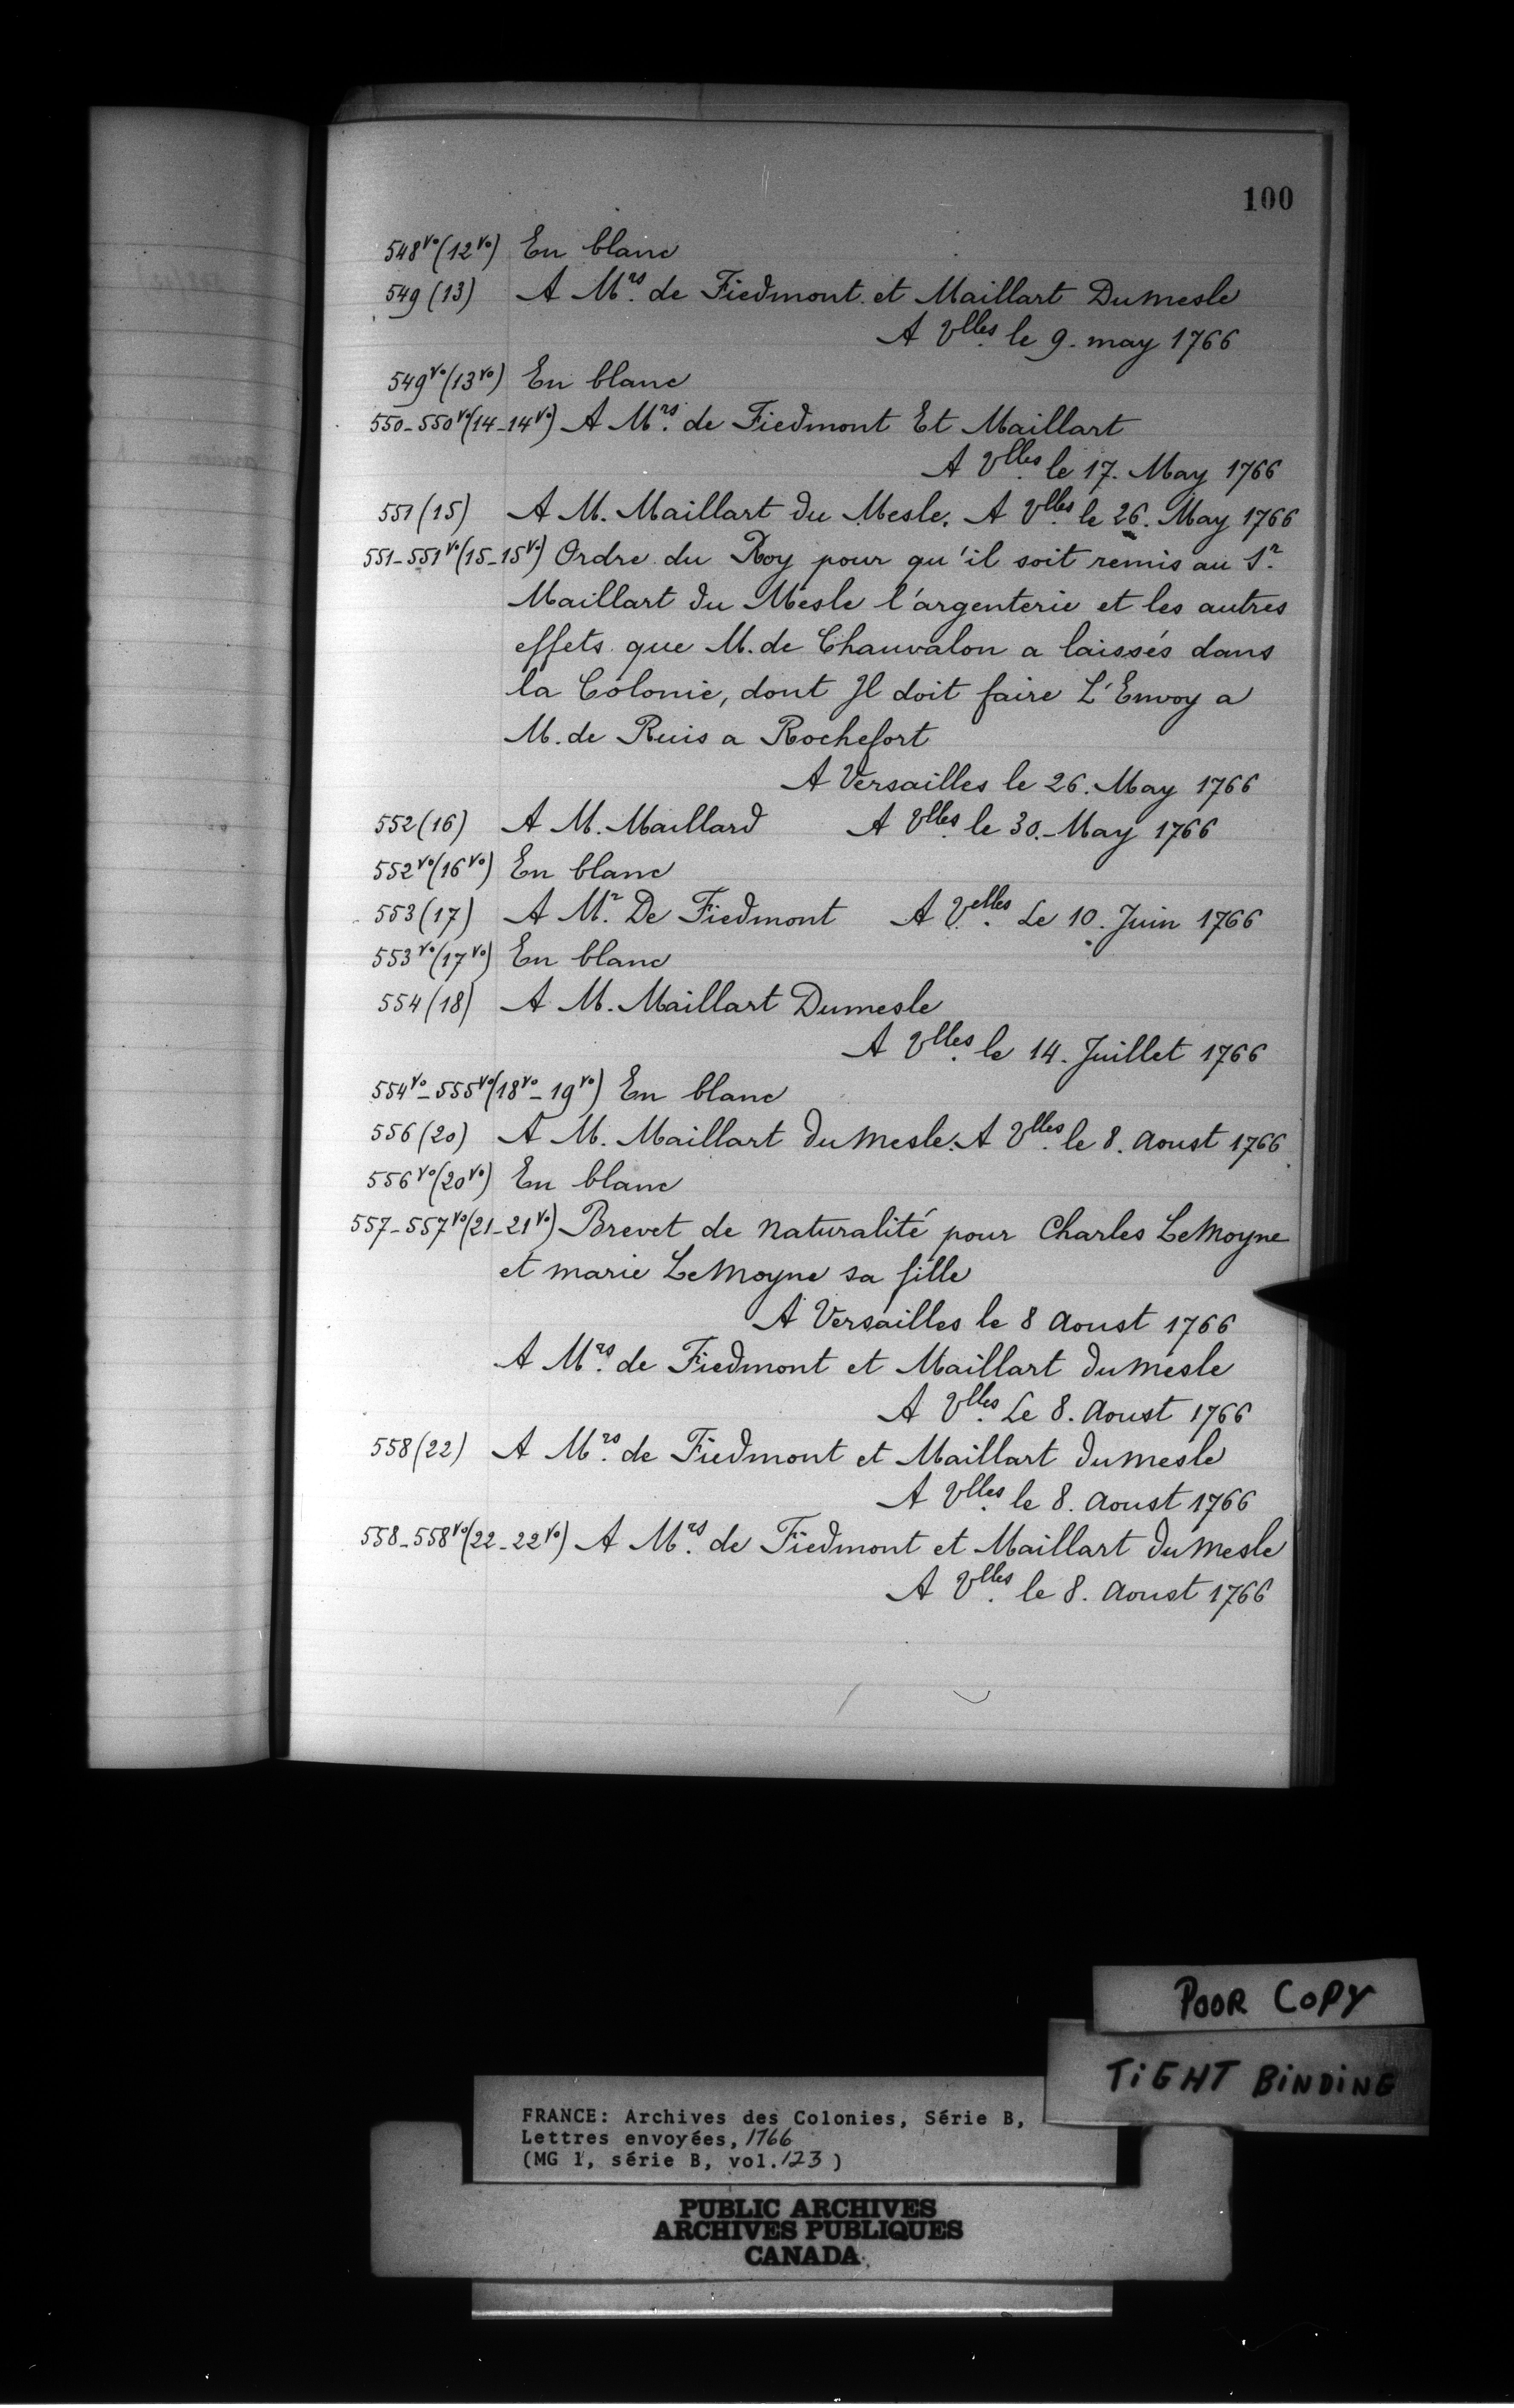 100
548vo (12vo) En blanc
549 (13) A Mrs. de Fiedmont et Maillart Dumesle
A Vlles. le 9. may 1766
549vo (13vo) En blanc
550-550vo (14-14vo) A Mrs. de Fiedmont Et Maillart
A Vlles. le 17. May 1766
551 (15) A M. Maillart du Mesle. A Vlles. le 26. May 1766
551-551vo (15-15vo) Ordre du Roy pour qu'il soit remis au Sr.
Maillart du Mesle l'argenterie et les autres
effets que M. de Chauvalon a laissés dans
la Colonie, dont Il doit faire L'Envoy a
M. de Ruis a Rochefort
A Versailles le 26. May 1766
552 (16) A M. Maillard A Vlles. le 30. May 1766
552vo (16vo) En blanc
553 (17) A Mr. De Fiedmont A Velles. Le 10. Juin 1766
553vo (17vo) En blanc
554 (18) A M. Maillart Dumesle
A Vlles. le 14. Juillet 1766
554vo-555vo (18vo-19vo) En blanc
556 (20) A M. Maillart du Mesle. A Vlles. le 8. Aoust 1766
556vo (20vo) En blanc
557-557vo (21-21vo) Brevet de Naturalité pour Charles LeMoyne
et marie LeMoyne sa fille
A Versailles le 8 Aoust 1766
A Mrs. de Fiedmont et Maillart du Mesle
A Vlles. Le 8. Aoust 1766
558 (22) A Mrs. de Fiedmont et Maillart du Mesle
A Vlles. le 8. Aoust 1766
558-558vo (22-22vo) A Mrs. de Fiedmont et Maillart du Mesle
A Vlles. le 8. Aoust 1766
POOR COPY
TiGHT BiNDiNG
FRANCE: Archives des Colonies, Série B,
Lettres envoyées, 1766
(MG 1, série B, vol. 123)
PUBLIC ARCHIVES
ARCHIVES PUBLIQUES
CANADA